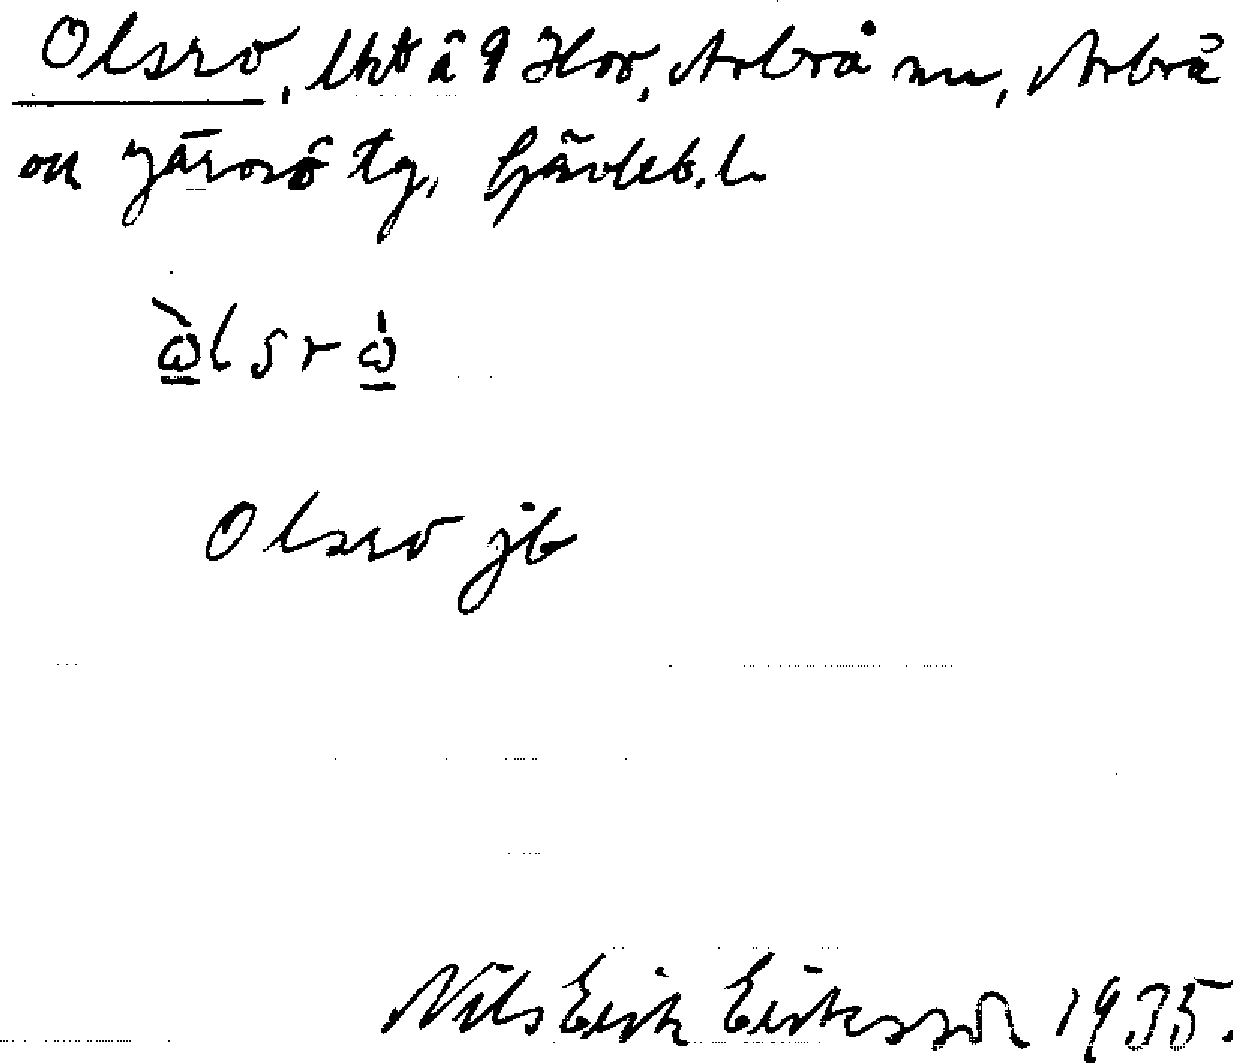 Olsro, lht å 9 Hov, Arbrå sn, Arbrå
och Järvsö tg, Gävleb. l.
Olsro jb
Nils Erik Eriksson 1935.